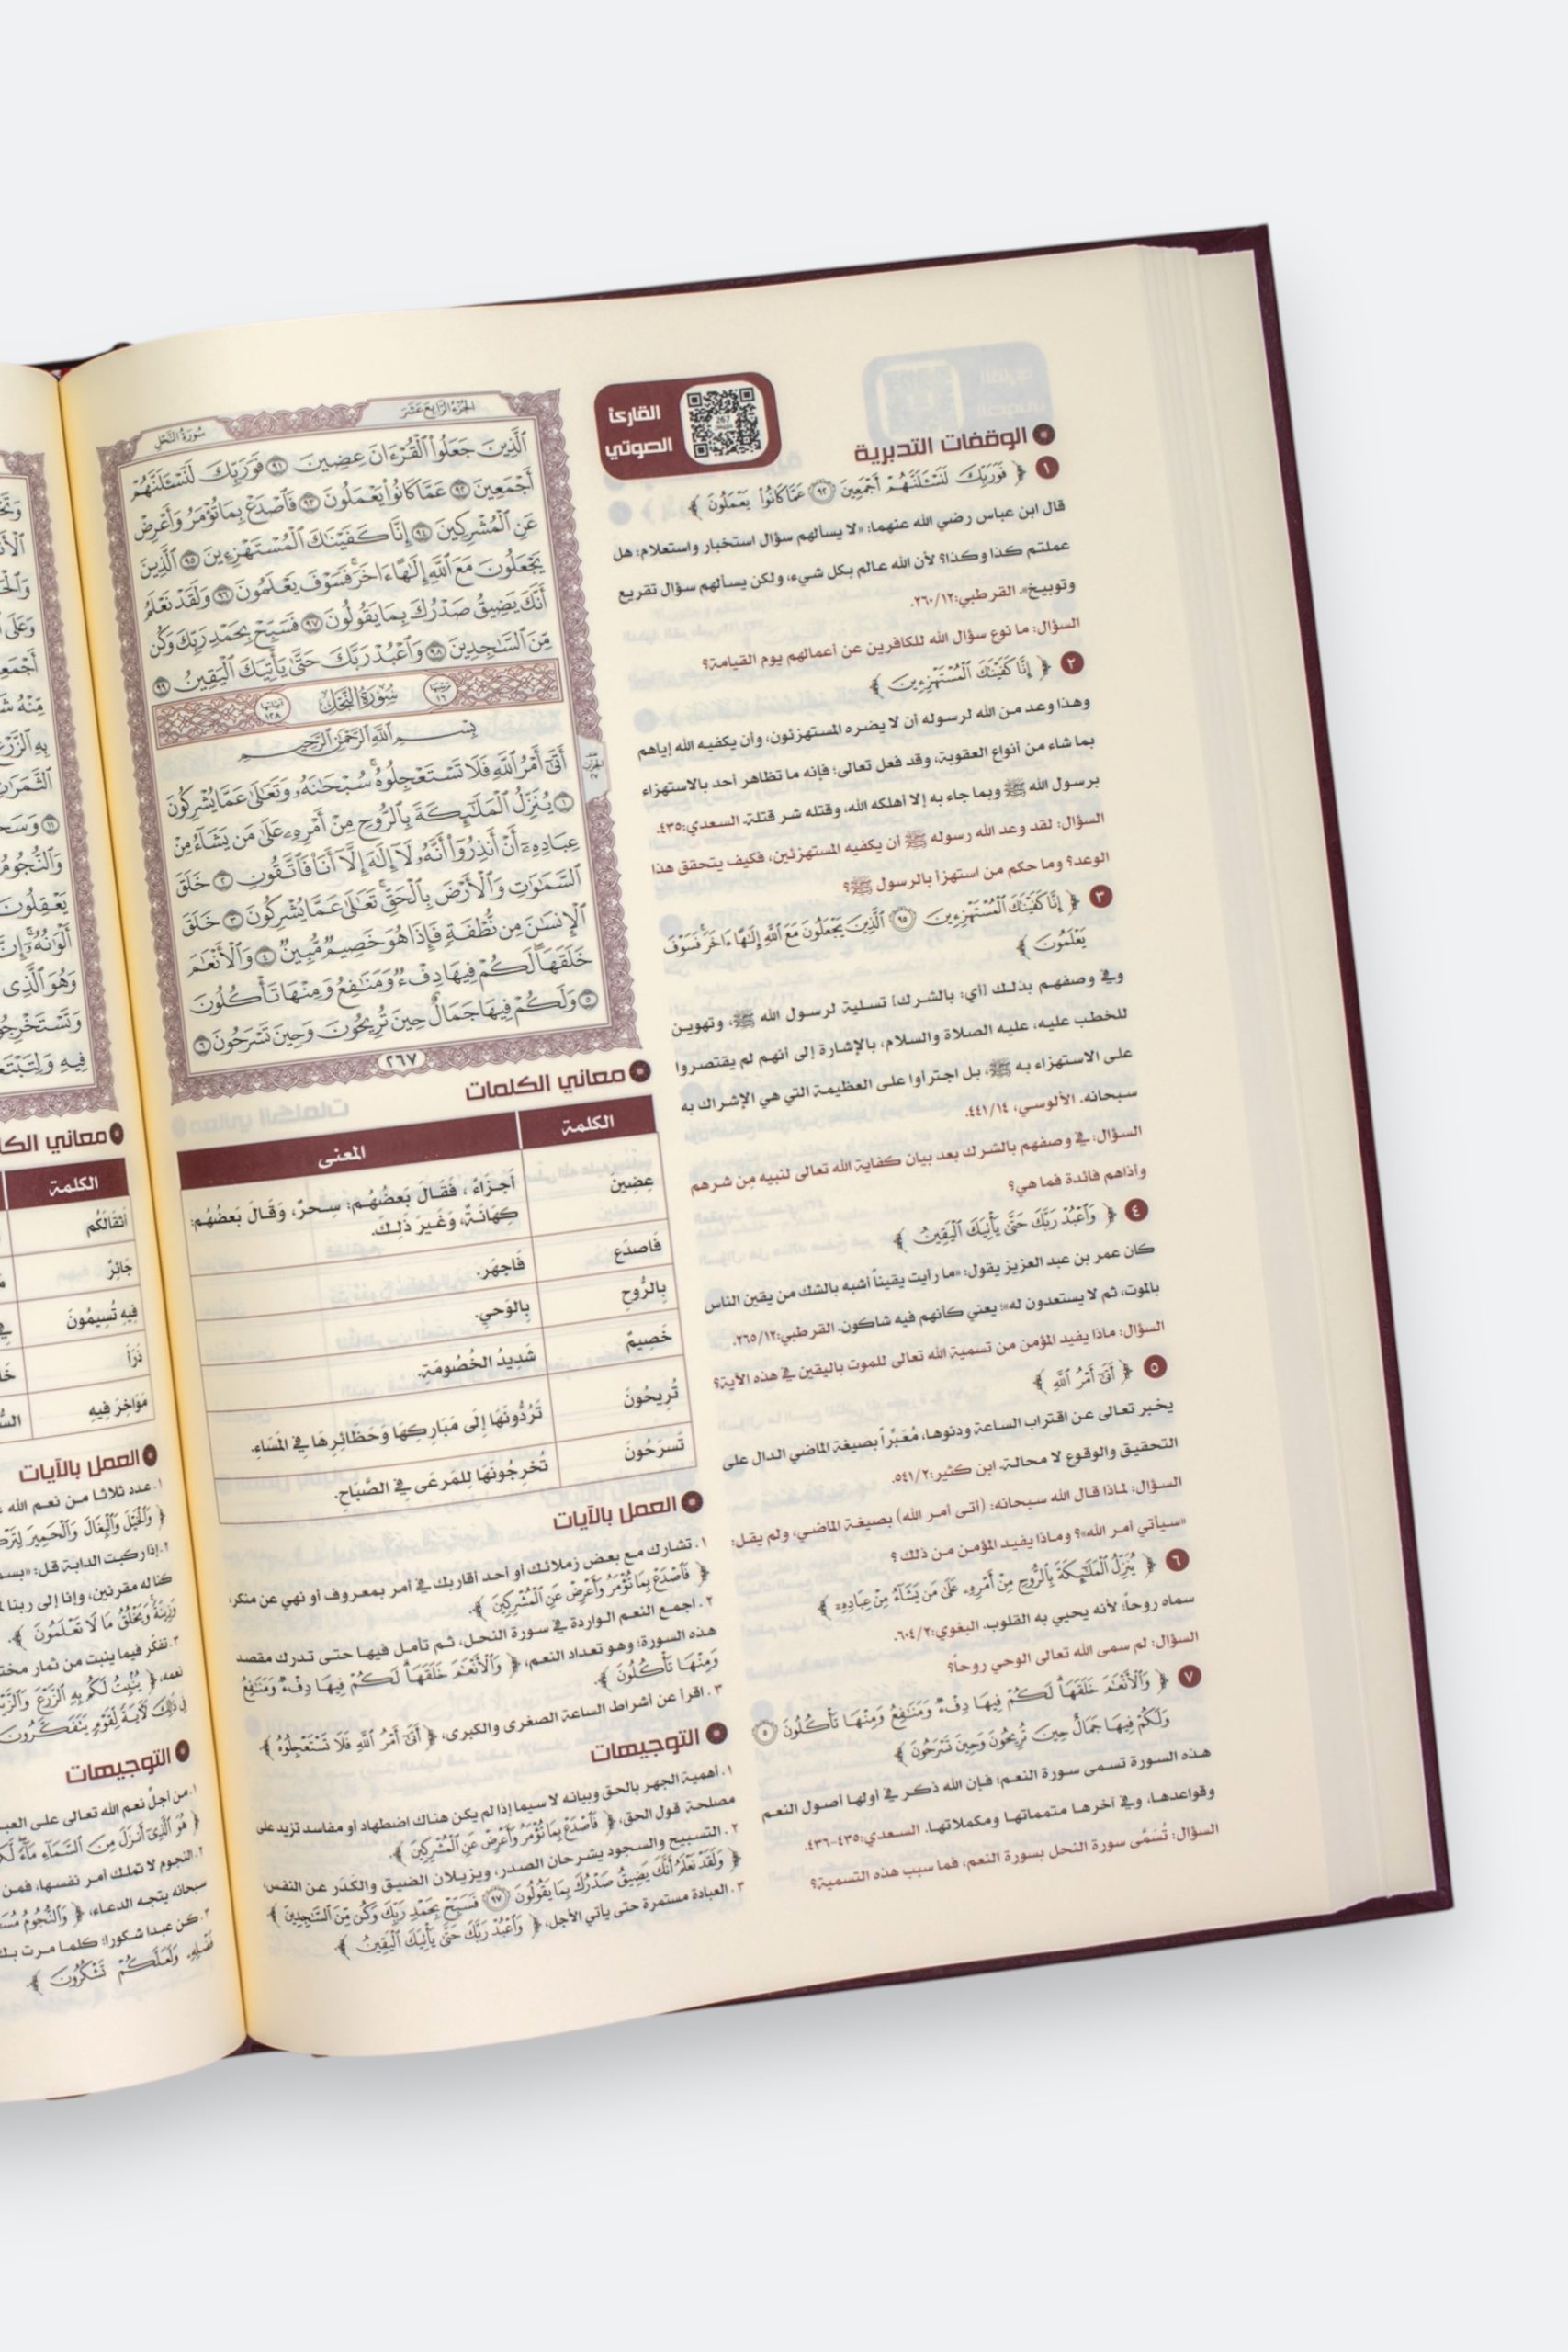 الجزء الرابع عشر
سورة النحل
ٱلَّذِينَ جَعَلُوا۟ ٱلْقُرْءَانَ عِضِينَ ٩١ فَوَرَبِّكَ لَنَسْـَٔلَنَّهُمْ
أَجْمَعِينَ ٩٢ عَمَّا كَانُوا۟ يَعْمَلُونَ ٩٣ فَٱصْدَعْ بِمَا تُؤْمَرُ وَأَعْرِضْ
عَنِ ٱلْمُشْرِكِينَ ٩٤ إِنَّا كَفَيْنَـٰكَ ٱلْمُسْتَهْزِءِينَ ٩٥ ٱلَّذِينَ
يَجْعَلُونَ مَعَ ٱللَّهِ إِلَـٰهًا ءَاخَرَ ۚ فَسَوْفَ يَعْلَمُونَ ٩٦ وَلَقَدْ نَعْلَمُ
أَنَّكَ يَضِيقُ صَدْرُكَ بِمَا يَقُولُونَ ٩٧ فَسَبِّحْ بِحَمْدِ رَبِّكَ وَكُن
مِّنَ ٱلسَّـٰجِدِينَ ٩٨ وَٱعْبُدْ رَبَّكَ حَتَّىٰ يَأْتِيَكَ ٱلْيَقِينُ ٩٩
ترتيبها ١٦ سورة النحل آياتها ١٢٨
بِسْمِ ٱللَّهِ ٱلرَّحْمَـٰنِ ٱلرَّحِيمِ
أَتَىٰٓ أَمْرُ ٱللَّهِ فَلَا تَسْتَعْجِلُوهُ ۚ سُبْحَـٰنَهُۥ وَتَعَـٰلَىٰ عَمَّا يُشْرِكُونَ
١ يُنَزِّلُ ٱلْمَلَـٰٓئِكَةَ بِٱلرُّوحِ مِنْ أَمْرِهِۦ عَلَىٰ مَن يَشَآءُ مِنْ
عِبَادِهِۦٓ أَنْ أَنذِرُوٓا۟ أَنَّهُۥ لَآ إِلَـٰهَ إِلَّآ أَنَا۠ فَٱتَّقُونِ ٢ خَلَقَ
ٱلسَّمَـٰوَٰتِ وَٱلْأَرْضَ بِٱلْحَقِّ ۚ تَعَـٰلَىٰ عَمَّا يُشْرِكُونَ ٣ خَلَقَ
ٱلْإِنسَـٰنَ مِن نُّطْفَةٍ فَإِذَا هُوَ خَصِيمٌ مُّبِينٌ ٤ وَٱلْأَنْعَـٰمَ
خَلَقَهَا ۗ لَكُمْ فِيهَا دِفْءٌ وَمَنَـٰفِعُ وَمِنْهَا تَأْكُلُونَ
٥ وَلَكُمْ فِيهَا جَمَالٌ حِينَ تُرِيحُونَ وَحِينَ تَسْرَحُونَ ٦
٢٦٧
معاني الكلمات
الكلمة المعنى
عِضِينَ أَجزَاءً، فَقَالَ بَعضُهُم: سِحرٌ، وَقَالَ بَعضُهُم:
كِهَانَةٌ، وَغَيرَ ذَلِكَ.
فَاصدَع فَاجهَر.
بِالرُّوحِ بِالوَحيِ.
خَصِيمٌ شَدِيدُ الخُصُومَةِ.
تُرِيحُونَ تَرُدُّونَهَا إِلَى مَبَارِكِهَا وَحَظَائِرِهَا فِي المَسَاءِ.
تَسرَحُونَ تُخرِجُونَهَا لِلمَرعَى فِي الصَّبَاحِ.
العمل بالآيات
١. تشارك مع بعض زملائك أو أحد أقاربك في أمر بمعروف أو نهي عن منكر،
﴿ فَٱصْدَعْ بِمَا تُؤْمَرُ وَأَعْرِضْ عَنِ ٱلْمُشْرِكِينَ ﴾.
٢. اجمع النعم الواردة في سورة النحل، ثم تأمل فيها حتى تدرك مقصد
هذه السورة؛ وهو تعداد النعم، ﴿ وَٱلْأَنْعَـٰمَ خَلَقَهَا ۗ لَكُمْ فِيهَا دِفْءٌ وَمَنَـٰفِعُ
وَمِنْهَا تَأْكُلُونَ ﴾.
٣. اقرأ عن أشراط الساعة الصغرى والكبرى، ﴿ أَتَىٰٓ أَمْرُ ٱللَّهِ فَلَا تَسْتَعْجِلُوهُ ﴾.
التوجيهات
١. أهمية الجهر بالحق وبيانه لا سيما إذا لم يكن هناك اضطهاد أو مفاسد تزيد على
مصلحة قول الحق، ﴿ فَٱصْدَعْ بِمَا تُؤْمَرُ وَأَعْرِضْ عَنِ ٱلْمُشْرِكِينَ ﴾.
٢. التسبيح والسجود يشرحان الصدر، ويزيلان الضيق والكَدَر عن النفس،
﴿ وَلَقَدْ نَعْلَمُ أَنَّكَ يَضِيقُ صَدْرُكَ بِمَا يَقُولُونَ ٩٧ فَسَبِّحْ بِحَمْدِ رَبِّكَ وَكُن مِّنَ ٱلسَّـٰجِدِينَ ﴾
٣. العبادة مستمرة حتى يأتي الأجل، ﴿ وَٱعْبُدْ رَبَّكَ حَتَّىٰ يَأْتِيَكَ ٱلْيَقِينُ ﴾.
القارئ
الصوتي
الوقفات التدبرية
١ ﴿ فَوَرَبِّكَ لَنَسْـَٔلَنَّهُمْ أَجْمَعِينَ ٩٢ عَمَّا كَانُوا۟ يَعْمَلُونَ ﴾
قال ابن عباس رضي الله عنهما: «لا يسألهم سؤال استخبار واستعلام: هل
عملتم كذا وكذا؟ لأن الله عالم بكل شيء، ولكن يسألهم سؤال تقريع
وتوبيخ». القرطبي:١٢/٢٦٠.
السؤال: ما نوع سؤال الله للكافرين عن أعمالهم يوم القيامة؟
٢ ﴿ إِنَّا كَفَيْنَـٰكَ ٱلْمُسْتَهْزِءِينَ ﴾
وهذا وعد من الله لرسوله أن لا يضره المستهزئون، وأن يكفيه الله إياهم
بما شاء من أنواع العقوبة، وقد فعل تعالى؛ فإنه ما تظاهر أحد بالاستهزاء
برسول الله ﷺ وبما جاء به إلا أهلكه الله، وقتله شر قتلة. السعدي:٤٣٥.
السؤال: لقد وعد الله رسوله ﷺ أن يكفيه المستهزئين، فكيف يتحقق هذا
الوعد؟ وما حكم من استهزأ بالرسول ﷺ؟
٣ ﴿ إِنَّا كَفَيْنَـٰكَ ٱلْمُسْتَهْزِءِينَ ٩٥ ٱلَّذِينَ يَجْعَلُونَ مَعَ ٱللَّهِ إِلَـٰهًا ءَاخَرَ ۚ فَسَوْفَ
يَعْلَمُونَ ﴾
وفي وصفهم بذلك [أي: بالشرك] تسلية لرسول الله ﷺ، وتهوين
للخطب عليه، عليه الصلاة والسلام، بالإشارة إلى أنهم لم يقتصروا
على الاستهزاء به ﷺ، بل اجترأوا على العظيمة التي هي الإشراك به
سبحانه. الألوسي، ١٤/٤٤١.
السؤال: في وصفهم بالشرك بعد بيان كفاية الله تعالى لنبيه من شرهم
وأذاهم فائدة فما هي؟
٤ ﴿ وَٱعْبُدْ رَبَّكَ حَتَّىٰ يَأْتِيَكَ ٱلْيَقِينُ ﴾
كان عمر بن عبد العزيز يقول: «ما رأيت يقيناً أشبه بالشك من يقين الناس
بالموت، ثم لا يستعدون له»؛ يعني كأنهم فيه شاكون. القرطبي:١٢/٢٦٥.
السؤال: ماذا يفيد المؤمن من تسمية الله تعالى للموت باليقين في هذه الآية؟
٥ ﴿ أَتَىٰٓ أَمْرُ ٱللَّهِ ﴾
يخبر تعالى عن اقتراب الساعة ودنوها، مُعَبِّراً بصيغة الماضي الدال على
التحقيق والوقوع لا محالة. ابن كثير:٢/٥٤١.
السؤال: لماذا قال الله سبحانه: (أتى أمر الله) بصيغة الماضي، ولم يقل:
«سيأتي أمر الله»؟ وماذا يفيد المؤمن من ذلك؟
٦ ﴿ يُنَزِّلُ ٱلْمَلَـٰٓئِكَةَ بِٱلرُّوحِ مِنْ أَمْرِهِۦ عَلَىٰ مَن يَشَآءُ مِنْ عِبَادِهِۦٓ ﴾
سماه روحاً؛ لأنه يحيي به القلوب. البغوي:٢/٦٠٤.
السؤال: لم سمى الله تعالى الوحي روحاً؟
٧ ﴿ وَٱلْأَنْعَـٰمَ خَلَقَهَا ۗ لَكُمْ فِيهَا دِفْءٌ وَمَنَـٰفِعُ وَمِنْهَا تَأْكُلُونَ ٥
وَلَكُمْ فِيهَا جَمَالٌ حِينَ تُرِيحُونَ وَحِينَ تَسْرَحُونَ ﴾
هذه السورة تسمى سورة النعم؛ فإن الله ذكر في أولها أصول النعم
وقواعدها، وفي آخرها متمماتها ومكملاتها. السعدي:٤٣٥-٤٣٦.
السؤال: تُسَمَّى سورة النحل بسورة النعم، فما سبب هذه التسمية؟
معاني الكلـ
الكلمة
أَثقَالَكُم
جَائِرٌ
فِيهِ تُسِيمُونَ
ذَرَأَ
مَوَاخِرَ فِيهِ
العمل بالآيات
١. عدد ثلاثا من نعم الله
﴿ وَٱلْخَيْلَ وَٱلْبِغَالَ وَٱلْحَمِيرَ
٢. إذا ركبت الدابة قل:
كنا له مقرنين، وإنا إلى ربنا
وَزِينَةً ۚ وَيَخْلُقُ مَا لَا تَعْلَمُونَ ﴾.
٣. تفكر فيما ينبت من ثمار
نعمه، ﴿ يُنۢبِتُ لَكُم بِهِ ٱلزَّرْعَ
فِى ذَٰلِكَ لَـَٔايَةً لِّقَوْمٍ يَتَفَكَّرُونَ
التوجيهات
١. من أجلّ نعم الله تعالى على
﴿ هُوَ ٱلَّذِىٓ أَنزَلَ مِنَ ٱلسَّمَآءِ مَآءً ۖ
٢. النجوم لا تملك أمر نفسها، فمن
سبحانه يتجه الدعاء، ﴿ وَٱلنُّجُومُ
٣. كن عبدا شكورا؛ كلما مرت بك
فَضْلِهِۦ وَلَعَلَّكُمْ تَشْكُرُونَ ﴾.